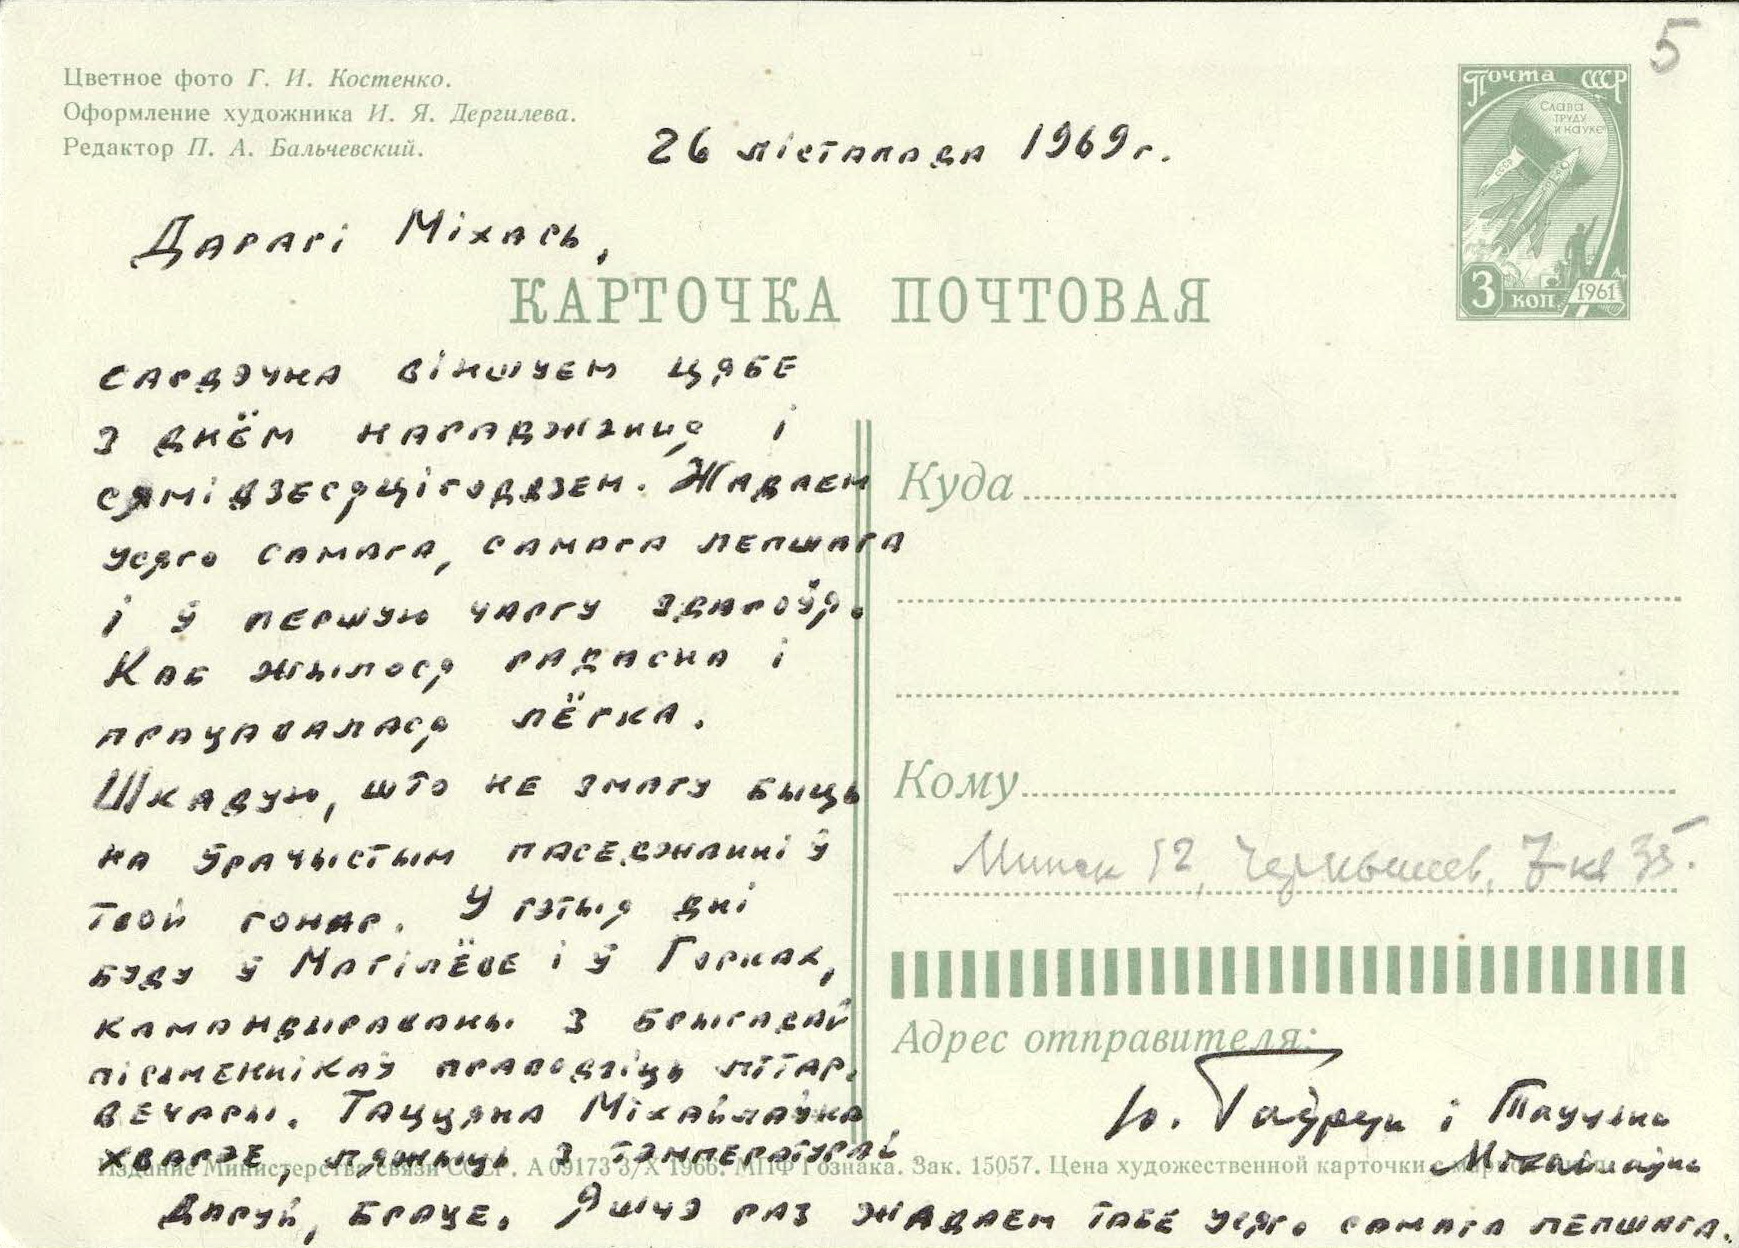 Цветное фото Г. И. Костенко.
Оформление художника И. Я. Дергилева.
Редактор П. А. Бальчевский.
5
ПОЧТА СССР
СЛАВА
ТРУДУ
И НАУКЕ
СССР
3 КОП. 1961
26 лістапада 1969 г.
Дарагі Міхась,
КАРТОЧКА ПОЧТОВАЯ
сардэчна віншуем цябе
з днём нараджэння і
сямідзесяцігоддзем. Жадаем
усяго самага, самага лепшага
і ў першую чаргу здароўя.
Каб жылося радасна і
працавалася лёгка.
Шкадую, што не змагу быць
на ўрачыстым паседжанні ў
твой гонар. У гэтыя дні
буду ў Магілёве і ў Горках,
камандыраваны з брыгадай
пісьменнікаў праводзіць літар.
вечары. Таццяна Міхайлаўна
хварэе, ляжыць з тэмпературай
Даруй, браце. Яшчэ раз жадаем табе усяго самага лепшага.
Куда
Кому
Минск 12, Чернышев, 7 кв 35.
Адрес отправителя:
Ю. Гаўрук і Таццяна
Міхайлаўна
Издание Министерства связи СССР. А 09173 3/X 1966. МПФ Гознака. Зак. 15057. Цена художественной карточки с маркой